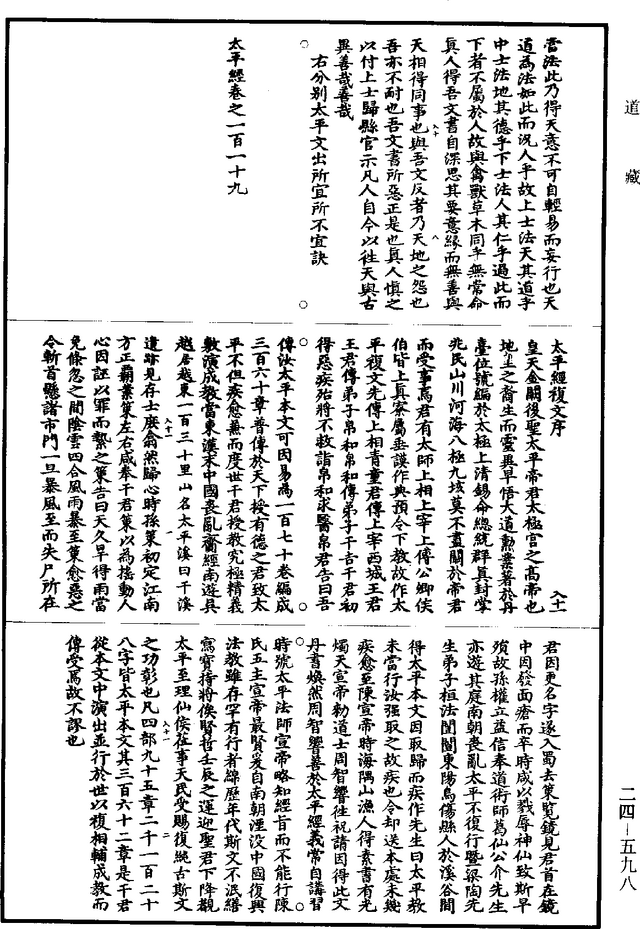 道藏
當法此乃得天意不可自輕易而妄行也天
道為法如此而況人乎故上士法天其道乎
中士法地其德乎下士法人其仁乎過此而
下者不屬於人故與禽獸草木同乎無常命
真人得吾文書自深思其要意緣而無善與
天相得同事也與吾文反者乃天地之怨也
吾亦不耐也吾文書所惡正是也真人慎之
以付上士歸縣官示凡人自今以往天與古
異善哉善哉
右分别太平文出所宜所不宜訣
太平經卷之一百一十九
太平經複文序
皇天金闕後聖太平帝君太極宮之高帝也
地皇之裔生而靈異早悟大道勳業著於丹
臺位號編於太極上清錫命總統群真封掌
兆民山川河海八極九垓莫不盡關於帝君
而受事焉君有太師上相上宰上傅公卿侯
伯皆上真寮屬垂謨作典預令下教故作太
平複文先傳上相青童君傳上宰西城王君
王君傳弟子帛和帛和傳弟子干吉干君初
得惡疾殆將不救詣帛和求醫帛君告曰吾
傳汝太平本文可因易為一百七十卷編成
三百六十章普傳於天下授有德之君致太
平不但疾愈兼而度世干君授教究極精義
敷演成教當東漢末中國喪亂齎經南遊具
越居越東一百三十里山名太平溪曰干溪
遺跡見存士庶翕然歸心時孫策初定江南
方正霸業策左右咸奉干君策以為搖動人
心因誣以罪而繫之策告曰天久旱得雨當
免倏忽之間陰雲四合風雨暴至策愈惡之
令斬首懸諸市門一旦暴風至而失尸所在
君因更名字遂入蜀去策覽鏡見君首在鏡
中因發面瘡而卒時咸以戮辱神仙致斯早
殞故孫權立益信奉道術師葛仙公介先生
亦遊其庭南朝喪亂太平不復行暨梁陶先
生弟子桓法闓闓東陽烏傷縣人於溪谷間
得太平本文因取歸而疾作先生曰太平教
未當行汝強取之故疾也令却送本處未幾
疾愈至陳宣帝時海隅山漁人得素書有光
燭天宣帝勅道士周智響往祝請因得此文
丹書煥然周智響善於太平經義常自講習
時號太平法師宣帝略知經旨而不能行陳
氏五主宣帝最賢爰自南朝湮没中國復興
法教雖存罕有行者緜歷年代斯文不泯繕
寫寶持將俟賢哲壬辰之運迎聖君下降覩
太平至理仙侯莅事天民受賜復純古斯文
之功彰也凡四部九十五章二千一百二十
八字皆太平本文其三百六十二章是干君
從本文中演出並行於世以複相輔成教而
傳受焉故不謬也
二四－五九八